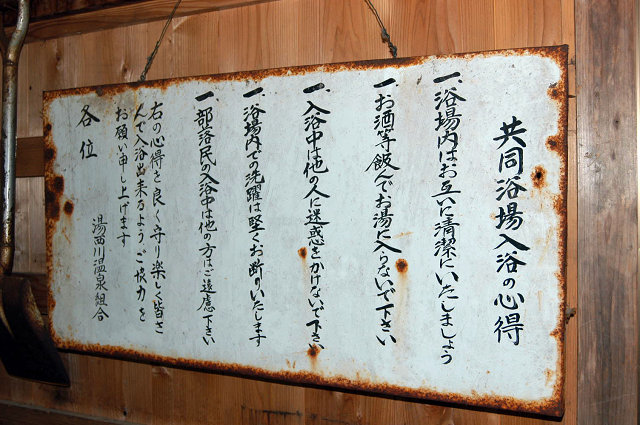 共同浴場入浴の心得
一、浴場内はお互いに清潔にいたしましょう
一、お酒等飲んでお湯に入らないで下さい
一、入浴中は他の人に迷惑をかけないで下さい
一、浴場内での洗躍は堅くお断りいたします
一、部落民の入浴中は他の方はご遠慮下さい
右の心得を良く守り楽しく皆さ
んで入浴出来るよう、ご协力を
お願い申し上げます
湯西川温泉組合
各位